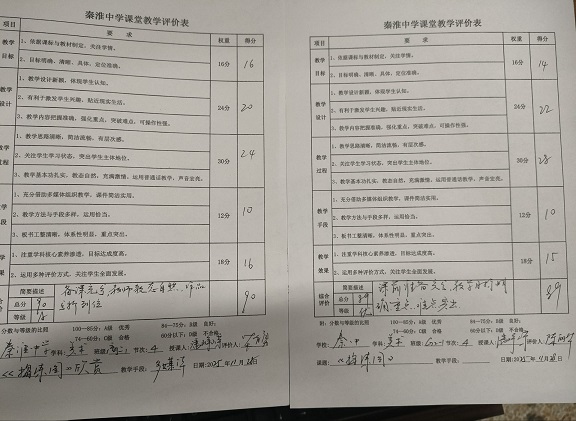 秦淮中学课堂教学评价表
项目 要 求 权重 得分
教学目标
1、依据课标与教材制定，关注学情。
2、目标明确、清晰、具体、定位准确。
16分 16
教学设计
1、教学设计新颖，体现学生认知。
2、有利于激发学生兴趣，贴近现实生活。
3、教学内容把握准确，强化重点，突破难点，可操作性强。
24分 20
过程
1、教学思路清晰，简洁流畅，有层次感。
2、关注学生学习状态，突出学生主体地位。
3、教学基本功扎实，教态自然，充满激情，运用普通话教学，声音宏亮。
30分 24
手段
1、充分借助多媒体组织教学，课件简洁实用。
2、教学方法与手段多样，运用恰当。
3、板书工整清晰，体系性明显，重点突出。
12分 10
效果
1、注重学科核心素养渗透，目标达成度高。
2、运用多种评价方式，关注学生全面发展。
18分 16
简要描述
总分 90
等级
90
分数与等级的比照 100—85分：A级 优秀 84—75分：B级 良好；
74—60分：C级 合格 60分以下：D级 不合格
秦淮中学 学科：美术 班级： 节次：4 授课人： 评价人：
教学手段：多媒体 日期：2025年11月26日
秦淮中学课堂教学评价表
项目 要 求 权重 得分
教学目标
1、依据课标与教材制定，关注学情。
2、目标明确、清晰、具体、定位准确。
16分 14
教学设计
1、教学设计新颖，体现学生认知。
2、有利于激发学生兴趣，贴近现实生活。
3、教学内容把握准确，强化重点，突破难点，可操作性强。
24分 22
教学过程
1、教学思路清晰，简洁流畅，有层次感。
2、关注学生学习状态，突出学生主体地位。
3、教学基本功扎实，教态自然，充满激情，运用普通话教学，声音宏亮。
30分 28
教学手段
1、充分借助多媒体组织教学，课件简洁实用。
2、教学方法与手段多样，运用恰当。
3、板书工整清晰，体系性明显，重点突出。
12分 10
教学效果
1、注重学科核心素养渗透，目标达成度高。
2、运用多种评价方式，关注学生全面发展。
18分 15
综合评价
简要描述
总分 89
等级
89
附：分数与等级的比照 100—85分：A级 优秀 84—75分：B级 良好；
74—60分：C级 合格 60分以下：D级 不合格
学校：秦中 学科：美术 班级： 节次：4 授课人： 评价人：
课题： 教学手段： 日期：2025年11月26日